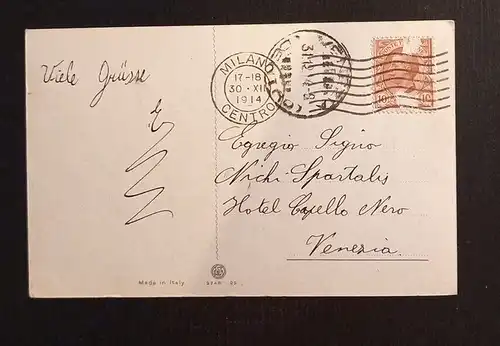 Viele Grüsse
MILANO
17-18
30·XII
1914
CENTRO
VENEZIA
POSTE ITALIANE
10 10
Egregio Signo
Michi Spartalis
Hotel Capello Nero
Venezia
Made in Italy